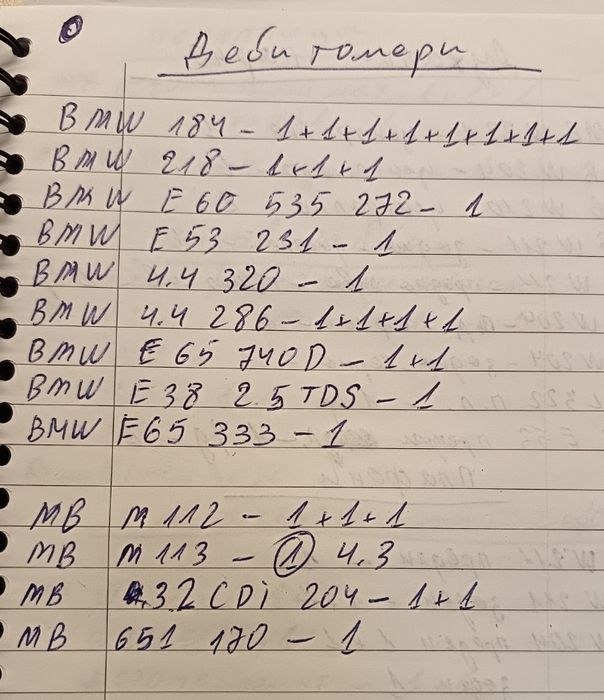 Дебитомери
BMW 184 - 1+1+1+1+1+1+1+1
BMW 218 - 1+1+1
BMW E60 535 272 - 1
BMW E53 231 - 1
BMW 4.4 320 - 1
BMW 4.4 286 - 1+1+1+1
BMW E65 740D - 1+1
BMW E38 2.5 TDS - 1
BMW E65 333 - 1
MB M112 - 1+1+1
MB M113 - 1 4.3
MB 32 CDi 204 - 1+1
MB 651 170 - 1